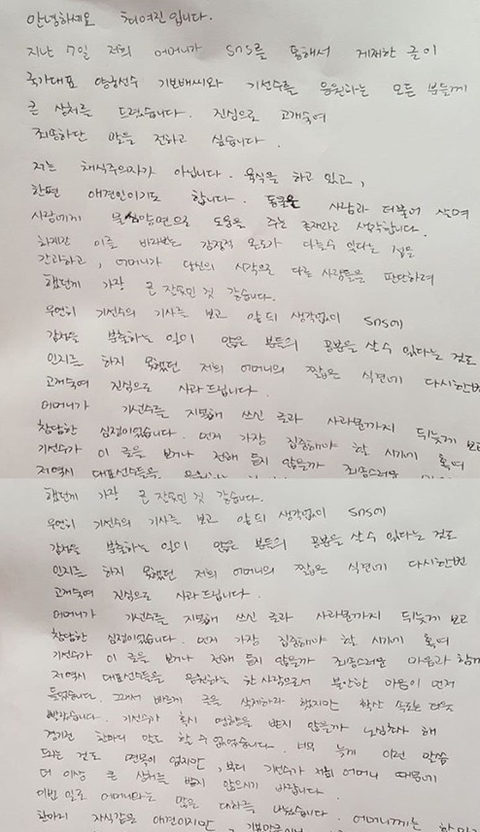 안녕하세요 최여진 입니다.
지난 7일 저희 어머니가 SNS를 통해서 게재한 글이
국가대표 양궁선수 기보배씨와 기선수를 응원하는 모든 분들께
큰 상처를 드렸습니다. 진심으로 고개숙여
죄송하단 말을 전하고 싶습니다.
저는 채식주의자가 아닙니다. 육식을 하고 있고,
한편 애견인이기도 합니다. 동물은 사람과 더불어 살며
사람에게 물심양면으로 도움을 주는 존재라고 생각합니다.
하지만 이를 바라보는 감정적 온도가 다를수 있다는 점을
간과하고, 어머니가 당신의 시각으로 다른 사람들을 판단하려
했던게 가장 큰 잘못인 것 같습니다.
우연히 기선수의 기사를 보고 앞뒤 생각없이 SNS에
감정을 분출하는 일이 많은 분들의 공분을 살 수 있다는 것도
인지를 하지 못했던 저희 어머니의 짧은 식견에 다시한번
고개숙여 진심으로 사과 드립니다.
어머니가 기선수를 지목해 쓰신 글과 사과문까지 뒤늦게 보고
참담한 심정이었습니다. 먼저 가장 집중해야 할 시기에 혹여
기선수가 이 글을 보거나 전해 듣지 않을까 죄송스러운
저역시 대표선수들을 응원하는
했던게 가장 큰 잘못인 것 같습니다.
우연히 기선수의 기사를 보고 앞뒤 생각없이 SNS에
감정을 분출하는 일이 많은 분들의 공분을 살 수 있다는 것도
인지를 하지 못했던 저희 어머니의 짧은 식견에 다시한번
고개숙여 진심으로 사과 드립니다.
어머니가 기선수를 지목해 쓰신 글과 사과문까지 뒤늦게 보고
참담한 심정이었습니다. 먼저 가장 집중해야 할 시기에 혹여
기선수가 이 글을 보거나 전해 듣지 않을까 죄송스러운 마음과 함께
저역시 대표선수들을 응원하는 한 사람으로서 불안한 마음이 먼저
들었습니다. 그래서 바르게 글을 삭제하라 했지만 확산 속도는 더욱
빨랐습니다. 기선수가 혹시 영향을 받지 않을까 노심초사 해
경기전 한마디 말도 할 수 없었습니다. 너무 늦게 이런 말씀
드리는 것도 면목이 없지만, 부디 기선수가 저희 어머니 때문에
더 이상 큰 상처를 받지 않으시기 바랍니다.
이번 일로 어머니와는 많은 대화를 나눴습니다. 어머니께는
한마리 자식같은 애견이지만,